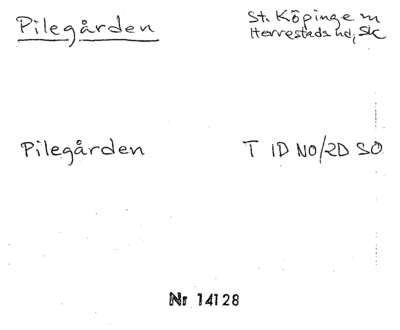 Pilegården
St. Köpinge sn
Herrestads hd, Sk
Pilegården
T 1D NO/2D SO
Nr 14128